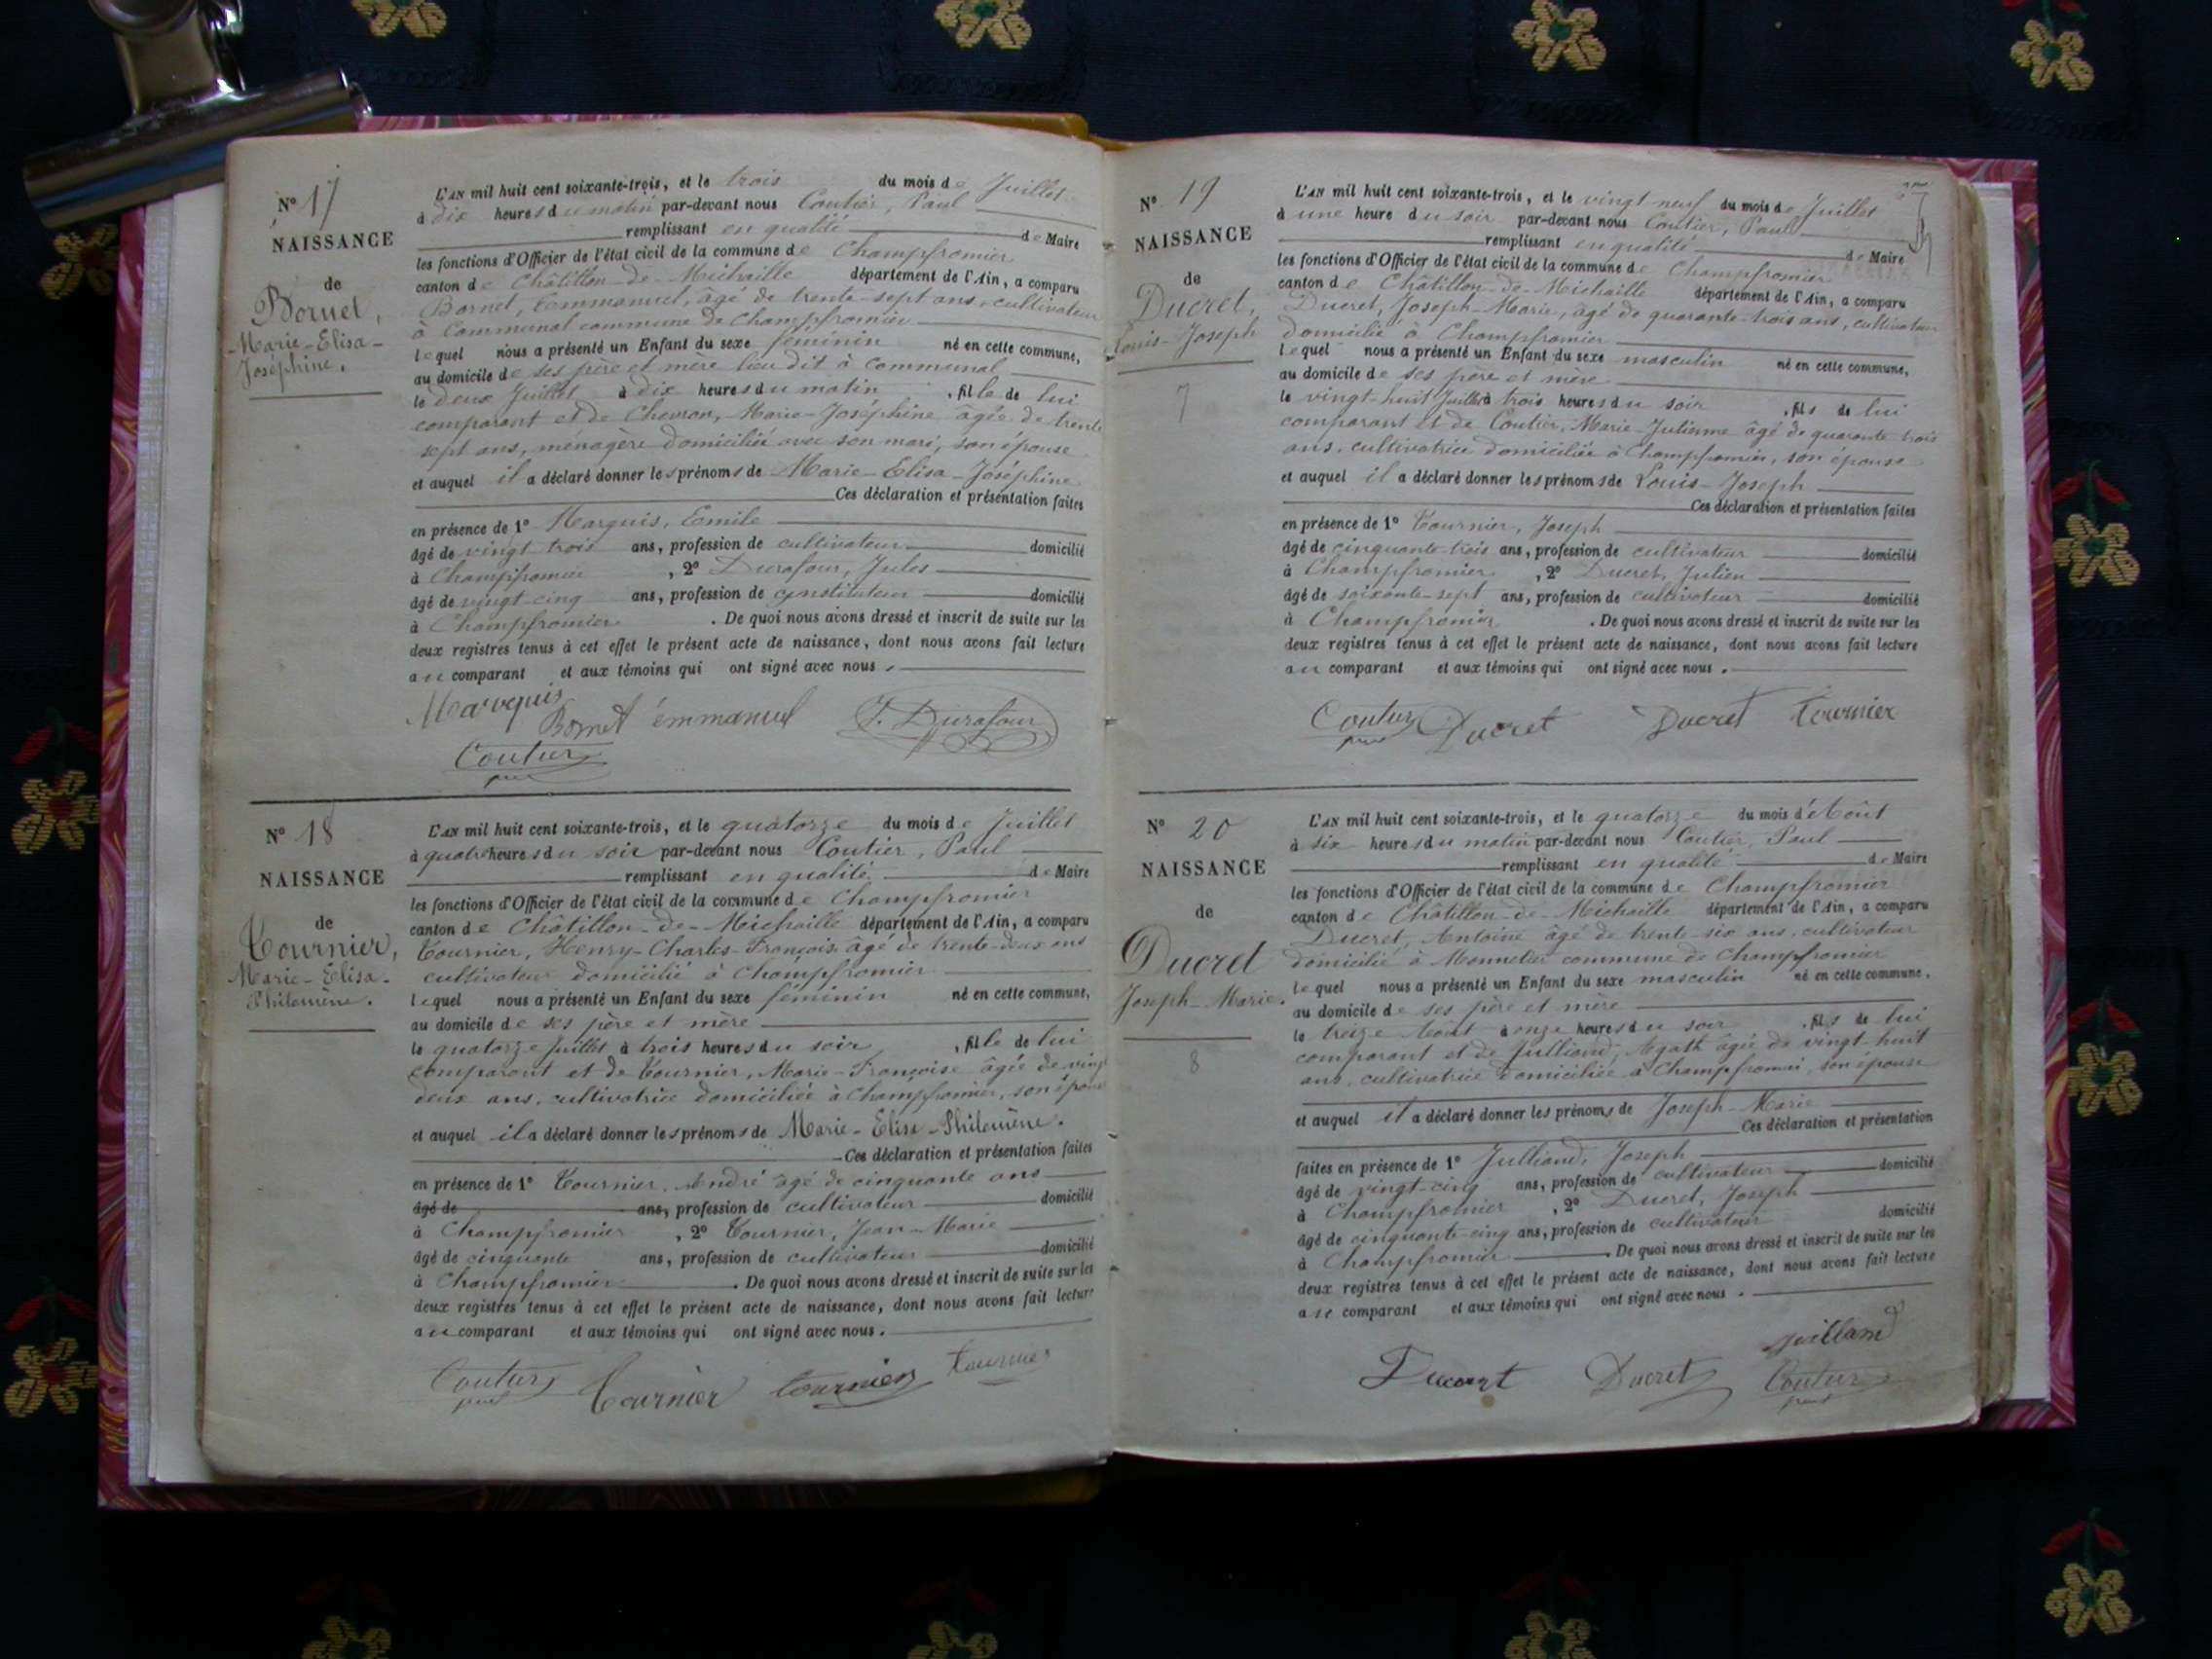 N° 17
NAISSANCE
de
Bornet,
Marie-Elisa-
Joséphine.
L'AN mil huit cent soixante-trois, et le trois du mois de Juillet
à dix heures du matin par-devant nous Coutier, Paul
remplissant en qualité de Maire
les fonctions d'Officier de l'état civil de la commune de Champfromier
canton de Châtillon-de-Michaille département de l'Ain, a comparu
Bornet, Emmanuel, âgé de trente-sept ans, cultivateur
à Communal commune de Champfromier
lequel nous a présenté un Enfant du sexe féminin né en cette commune,
au domicile de ses père et mère lieu dit à Communal
le deux Juillet à dix heures du matin , fille de lui
comparant et de Chevron, Marie-Joséphine âgée de trente
sept ans, ménagère domiciliée avec son mari, son épouse
et auquel il a déclaré donner les prénoms de Marie-Elisa-Joséphine
Ces déclaration et présentation faites
en présence de 1° Marquis, Emile
âgé de vingt trois ans, profession de cultivateur domicilié
à Champfromier , 2° Durafour, Jules
âgé de vingt-cinq ans, profession de instituteur domicilié
à Champfromier . De quoi nous avons dressé et inscrit de suite sur les
deux registres tenus à cet effet le présent acte de naissance, dont nous avons fait lecture
au comparant et aux témoins qui ont signé avec nous.
Marquis
Bornet émmanuel J. Durafour
Coutier
N° 18
NAISSANCE
de
Tournier,
Marie-Elisa-
Philomène.
L'AN mil huit cent soixante-trois, et le quatorze du mois de Juillet
à quatre heures du soir par-devant nous Coutier, Paul
remplissant en qualité de Maire
les fonctions d'Officier de l'état civil de la commune de Champfromier
canton de Châtillon-de-Michaille département de l'Ain, a comparu
Tournier, Henry-Charles-François, âgé de trente-deux ans
cultivateur domicilié à Champfromier
lequel nous a présenté un Enfant du sexe féminin né en cette commune,
au domicile de ses père et mère
le quatorze Juillet à trois heures du soir , fille de lui
comparant et de Tournier, Marie-Françoise âgée de vingt
deux ans, cultivatrice domiciliée à Champfromier, son épouse
et auquel il a déclaré donner les prénoms de Marie-Elisa-Philomène.
Ces déclaration et présentation faites
en présence de 1° Tournier, André âgé de cinquante ans
âgé de ans, profession de cultivateur domicilié
à Champfromier , 2° Tournier, Jean-Marie
âgé de cinquante ans, profession de cultivateur domicilié
à Champfromier . De quoi nous avons dressé et inscrit de suite sur les
deux registres tenus à cet effet le présent acte de naissance, dont nous avons fait lecture
au comparant et aux témoins qui ont signé avec nous.
Coutier Tournier tournier tournier
N° 19
NAISSANCE
de
Ducret,
Louis-Joseph
7
L'AN mil huit cent soixante-trois, et le vingt neuf du mois de Juillet
à une heure du soir par-devant nous Coutier, Paul
remplissant en qualité de Maire
les fonctions d'Officier de l'état civil de la commune de Champfromier
canton de Châtillon-de-Michaille département de l'Ain, a comparu
Ducret, Joseph-Marie, âgé de quarante-trois ans, cultivateur
domicilié à Champfromier
lequel nous a présenté un Enfant du sexe masculin né en cette commune,
au domicile de ses père et mère
le vingt-huit Juillet à trois heures du soir , fils de lui
comparant et de Coutier, Marie-Julienne âgé de quarante trois
ans, cultivatrice domiciliée à Champfromier, son épouse
et auquel il a déclaré donner les prénoms de Louis-Joseph
Ces déclaration et présentation faites
en présence de 1° Tournier, Joseph
âgé de cinquante-trois ans, profession de cultivateur domicilié
à Champfromier , 2° Ducret, Julien
âgé de soixante-sept ans, profession de cultivateur domicilié
à Champfromier . De quoi nous avons dressé et inscrit de suite sur les
deux registres tenus à cet effet le présent acte de naissance, dont nous avons fait lecture
au comparant et aux témoins qui ont signé avec nous.
Coutier Ducret Ducret tournier
N° 20
NAISSANCE
de
Ducret
Joseph-Marie.
8
L'AN mil huit cent soixante-trois, et le quatorze du mois d'Août
à six heures du matin par-devant nous Coutier, Paul
remplissant en qualité de Maire
les fonctions d'Officier de l'état civil de la commune de Champfromier
canton de Châtillon-de-Michaille département de l'Ain, a comparu
Ducret, Antoine âgé de trente-six ans, cultivateur
domicilié à Monnetier commune de Champfromier
lequel nous a présenté un Enfant du sexe masculin né en cette commune,
au domicile de ses père et mère
le treize Août à onze heures du soir , fils de lui
comparant et de Julliand, Agath âgée de vingt-huit
ans, cultivatrice domiciliée à Champfromier, son épouse
et auquel il a déclaré donner les prénoms de Joseph-Marie
Ces déclaration et présentation
faites en présence de 1° Julliand, Joseph
âgé de vingt-cinq ans, profession de cultivateur domicilié
à Champfromier , 2° Ducret, Joseph
âgé de cinquante-cinq ans, profession de cultivateur domicilié
à Champfromier . De quoi nous avons dressé et inscrit de suite sur les
deux registres tenus à cet effet le présent acte de naissance, dont nous avons fait lecture
au comparant et aux témoins qui ont signé avec nous.
Juilland
Ducret Ducret Coutier